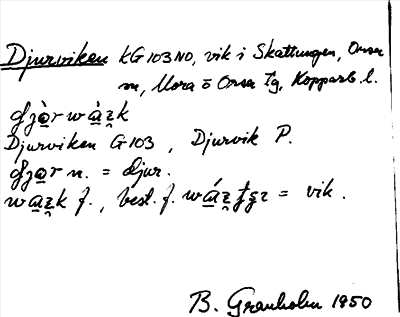 Djurviken KG 103 NO, vik i Skattungen, Orsa
sn, Mora o Orsa Tg, Kopparb l.
Djurviken G 103 , Djurvik P.
n. = djur.
f., best. f. = vik .
B. Granholm 1950